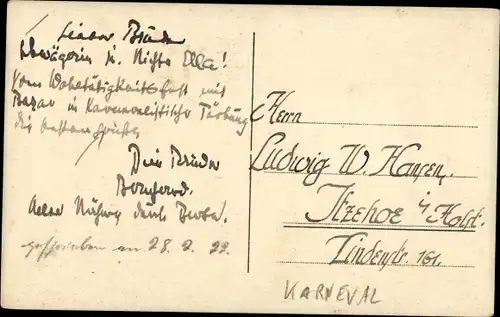 Lieber Bruder
Schwägerin u. Nichte Ella!
Vom Wohltätigkeitsfest mit
Bazar in Karnevalistischer Färbung
die besten Grüße
Dein Bruder
geschrieben am 28. 2. 22.
Herrn
Ludwig W. Hansen.
Itzehoe i/ Holst.
Lindenstr. 161.
KARNEVAL